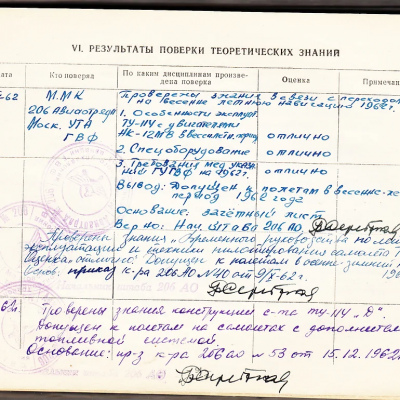 VI. РЕЗУЛЬТАТЫ ПОВЕРКИ ТЕОРЕТИЧЕСКИХ ЗНАНИЙ
Кто поверял
По каким дисциплинам произведена поверка
Оценка
Примечан
-62
ММК
206 Авиаотряда
Моск. УТА
ГВФ
Проверены знания в связи с переходом
на весенне летнюю навигацию 1962г.
1. Особенности эксплуат.
ТУ-114 с двигателями
НК-12МВ в весен. летн. период
отлично
2. Спецоборудование
отлично
3. Требования МГА указа-
ний ГУГВФ на 1962г.
отлично
Вывод: Допущен к полетам в весенне-ле
период 1962 года
Основание: зачётный лист
Верно: Нач. Штаба 206 АО
Проверены знания „Временного руководства по лётной
эксплуатации и технике пилотирования самолета
Оценка: отлично. Допущен к полетам в осенне-зимний
Основ: приказ к-ра 206 АО №40 от 9/X-62г.
62г.
Проверены знания конструкции с-та ТУ-114 „Д".
Допущен к полетам на самолетах с дополнител
топливной системой.
Основание: пр-з к-ра 206 ао №53 от 15.12.1962